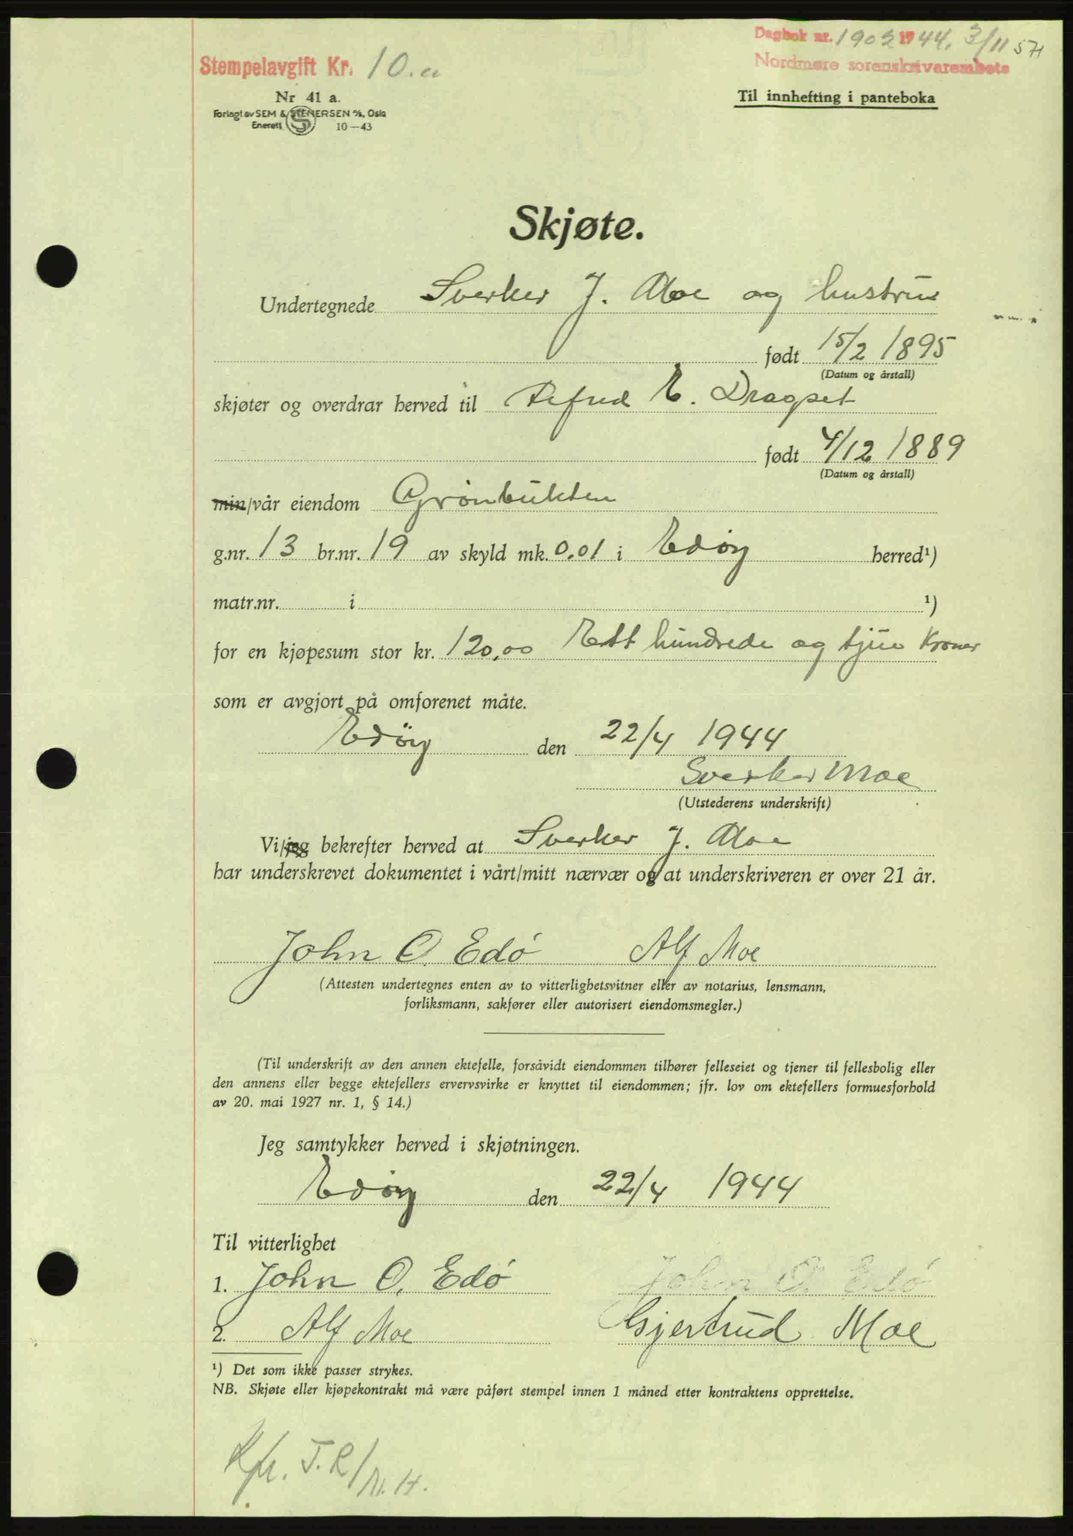 Dagbok nr. 1902 1944. 3/11 571
Nordmøre sorenskrivarembete
Stempelavgift Kr. 10.
Nr 41 a.
Forlagt av SEM & STENERSEN A/S, Oslo
Enerett 10-43
Til innhefting i panteboka
Skjøte.
Undertegnede Sverker J. Moe og hustru
født 15/2 1895
(Datum og årstall)
skjøter og overdrar herved til Alfred E. Dragset
født 4/12 1889
(Datum og årstall)
min/vår eiendom Grønbukten
g.nr. 13 br.nr. 19 av skyld mk. 0.01 i Edøy herred¹)
matr.nr. i ¹)
for en kjøpesum stor kr. 120,00 Ett hundrede og tjue Kroner
som er avgjort på omforenet måte.
Edöy den 22/4 1944
Sverker Moe
(Utstederens underskrift)
Vi/jeg bekrefter herved at Sverker J. Moe
har underskrevet dokumentet i vårt/mitt nærvær og at underskriveren er over 21 år.
John O. Edø Alf Moe
(Attesten undertegnes enten av to vitterlighetsvitner eller av notarius, lensmann,
forliksmann, sakfører eller autorisert eiendomsmegler.)
(Til underskrift av den annen ektefelle, forsåvidt eiendommen tilhører felleseiet og tjener til fellesbolig eller
den annens eller begge ektefellers ervervsvirke er knyttet til eiendommen; jfr. lov om ektefellers formuesforhold
av 20. mai 1927 nr. 1, § 14.)
Jeg samtykker herved i skjøtningen.
Edøy den 22/4 1944
Til vitterlighet
1. John O. Edø John O. Edø
2. Alf Moe Gjertrud Moe
¹) Det som ikke passer strykes.
NB. Skjøte eller kjøpekontrakt må være påført stempel innen 1 måned etter kontraktens opprettelse.
Kfr. T.R/N.H.